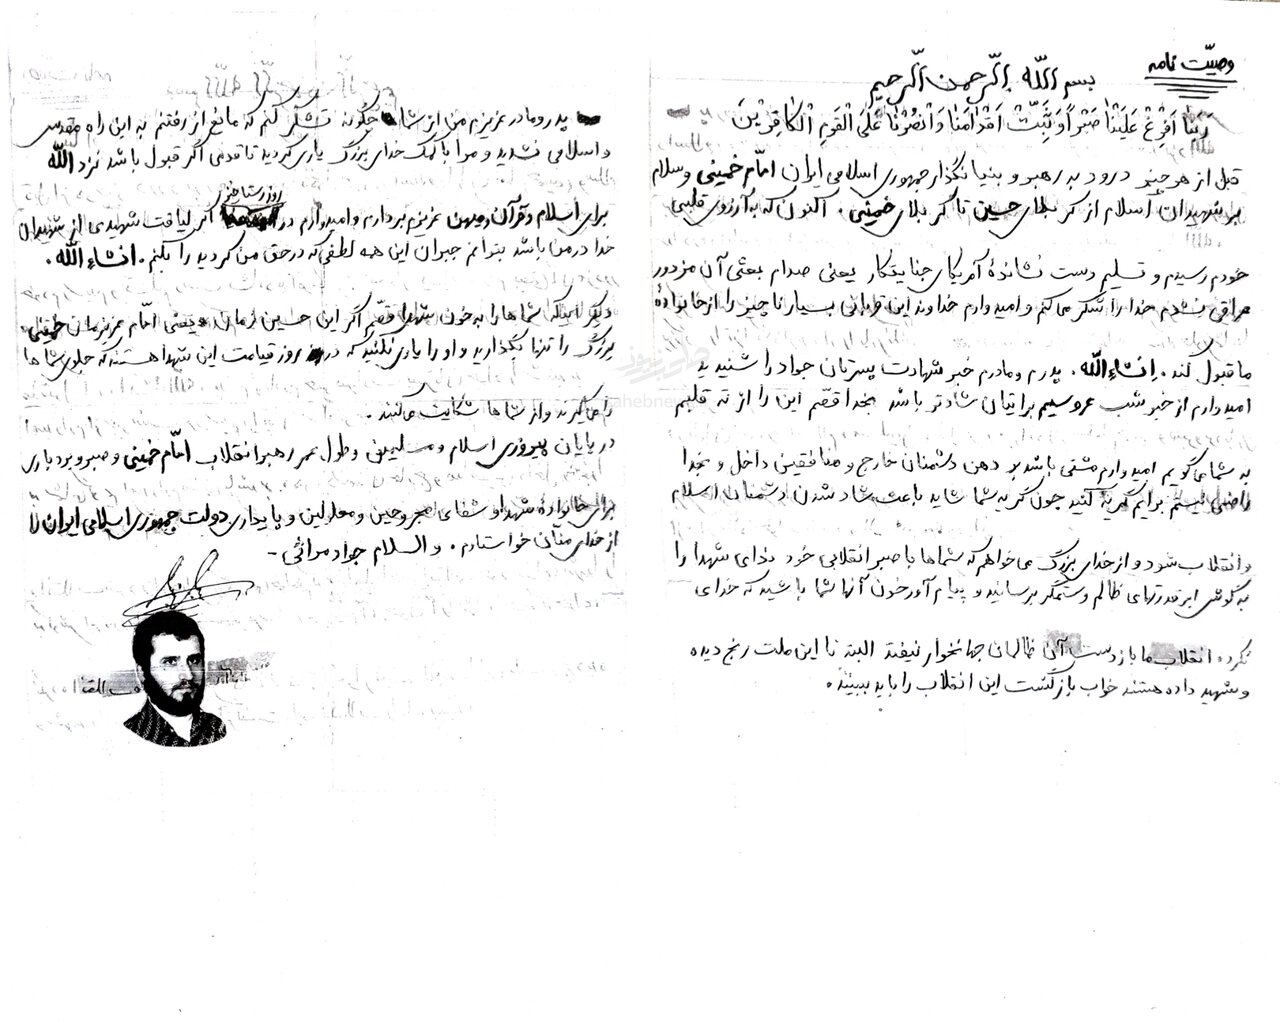 وصیّت نامه
بسم اللّه الرّحمن الرّحیم
رَبَّنا اَفْرِغْ عَلَیْنٰا صَبْراً وَثَبِّتْ اَقْدٰامَنٰا وَانْصُرْنٰا عَلَی الْقَومِ الْکٰافِریْنَ
قبل از هر چیز درود به رهبر و بنیانگذار جمهوری اسلامی ایران امّام خمینی وسلام
بر شهیدان اسلام از کربلای حسین تا کربلای خمینی. اکنون که به آرزوی قلبی
خودم رسیدم و تسلیم دست نشاندهٔ آمریکای جنایتکار یعنی صدام بعثی آن مزدور
عراقی نشدم خدا را شکر می‌کنم و امیدوارم خداوند این قربانی بسیار ناچیز را از خانوادهٔ
ما قبول کند. اِنشاءاللّه. پدرم و مادرم خبر شهادت پسرتان جواد را شنیدید
امیدوارم از خبر شب عروسیم برایتان شادتر باشد بخدا قسّم این را از ته قلبم
به شما می‌گویم امیدوارم مشتی باشد بر دهن دشمنان خارج و منافقین داخل و بخدا
راضی نیستم برایم گریه کنید چون گریه شما شاید باعث شاد شدن دشمنان اسلام
و انقلاب شود و از خدای بزرگ می‌خواهم که شماها با صبر انقلابی خود ندای شهدا را
به گوش ابرقدرتهای ظالم و ستمگر برسانید و پیام آور خون آنها شما باشید که خدای
نکرده انقلاب ما باز دست آن ظالمان جهانخوار نیفتد البته تا این ملت رنج دیده
و شهید داده هستند خواب بازگشت این انقلاب را باید ببینند.
پدر و مادر عزیزم من از شما چگونه تشکر کنم که مانع از رفتنم به این راه مقدس
و اسلامی نشدید و مرا با کمک خدای بزرگ یاری کردید تا قدمی اگر قبول باشد نزد اللّه
روز رستاخیز
برای اسلام و قرآن و میهن عزیزم بردارم و امیدوارم در اگر لیاقت شهیدی از شهیدان
خدا در من باشد بتوانم جبران این همه لطفی که در حق من کردید را بکنم. انشاءاللّه.
دیگر اینکه شما ها را به خون شهدا قسّم اگر این حسین زمان و یعنی امّام عزیزمان خمینی
بزرگ را تنها بگذارید و او را یاری نکنید که در روز قیامت این شهدا هستند که جلوی شما ها
را می‌گیرند و از شما ها شکایت می‌کنند.
در پایان پیروزی اسلام و مسلیمین و طول عمر رهبر انقلاب امّام خمینی و صبر و بردباری
برای خانوادهٔ شهدا و شفای مجروحین و معلولین و پایداری دولت جمهوری اسلامی ایران را
از خدای منّان خواستارم. والسلام جواد مراثی.